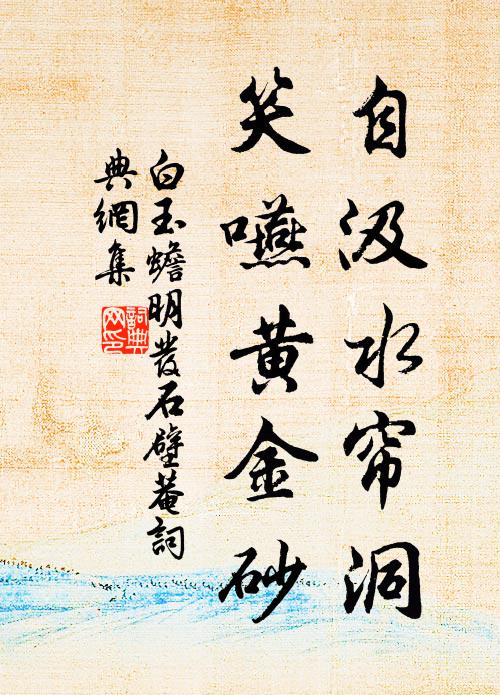 自汲水帘洞
笑嚥黄金砂
白玉蟾明发石壁菴詞
典網集
詞典
网印